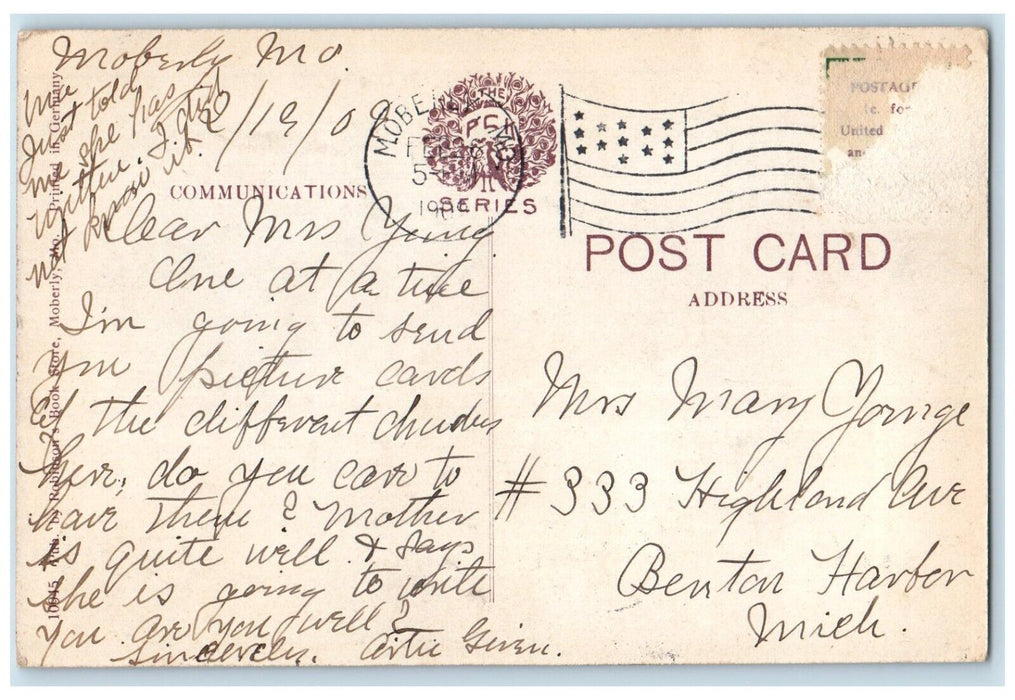 Moberly Mo.
2/19/09
Me
Just told
me she has
written. I did
not know it.
COMMUNICATIONS
Dear Mrs
One at a time
I'm going to send
you picture cards
of the different churches
here, do you care to
have them? Mother
is quite well & says
she is going to write
you are you well?
Sincerely. Given.
10045 Pub. by Robinson's Book Store, Moberly, Mo. Printed in Germany
MOBERLY MO.
FEB
5-PM
THE
PCK
SERIES
POSTAGE
United
POST CARD
ADDRESS
Mrs Mary Yornge
# 333 Highland Ave
Benton Harbor
Mich.